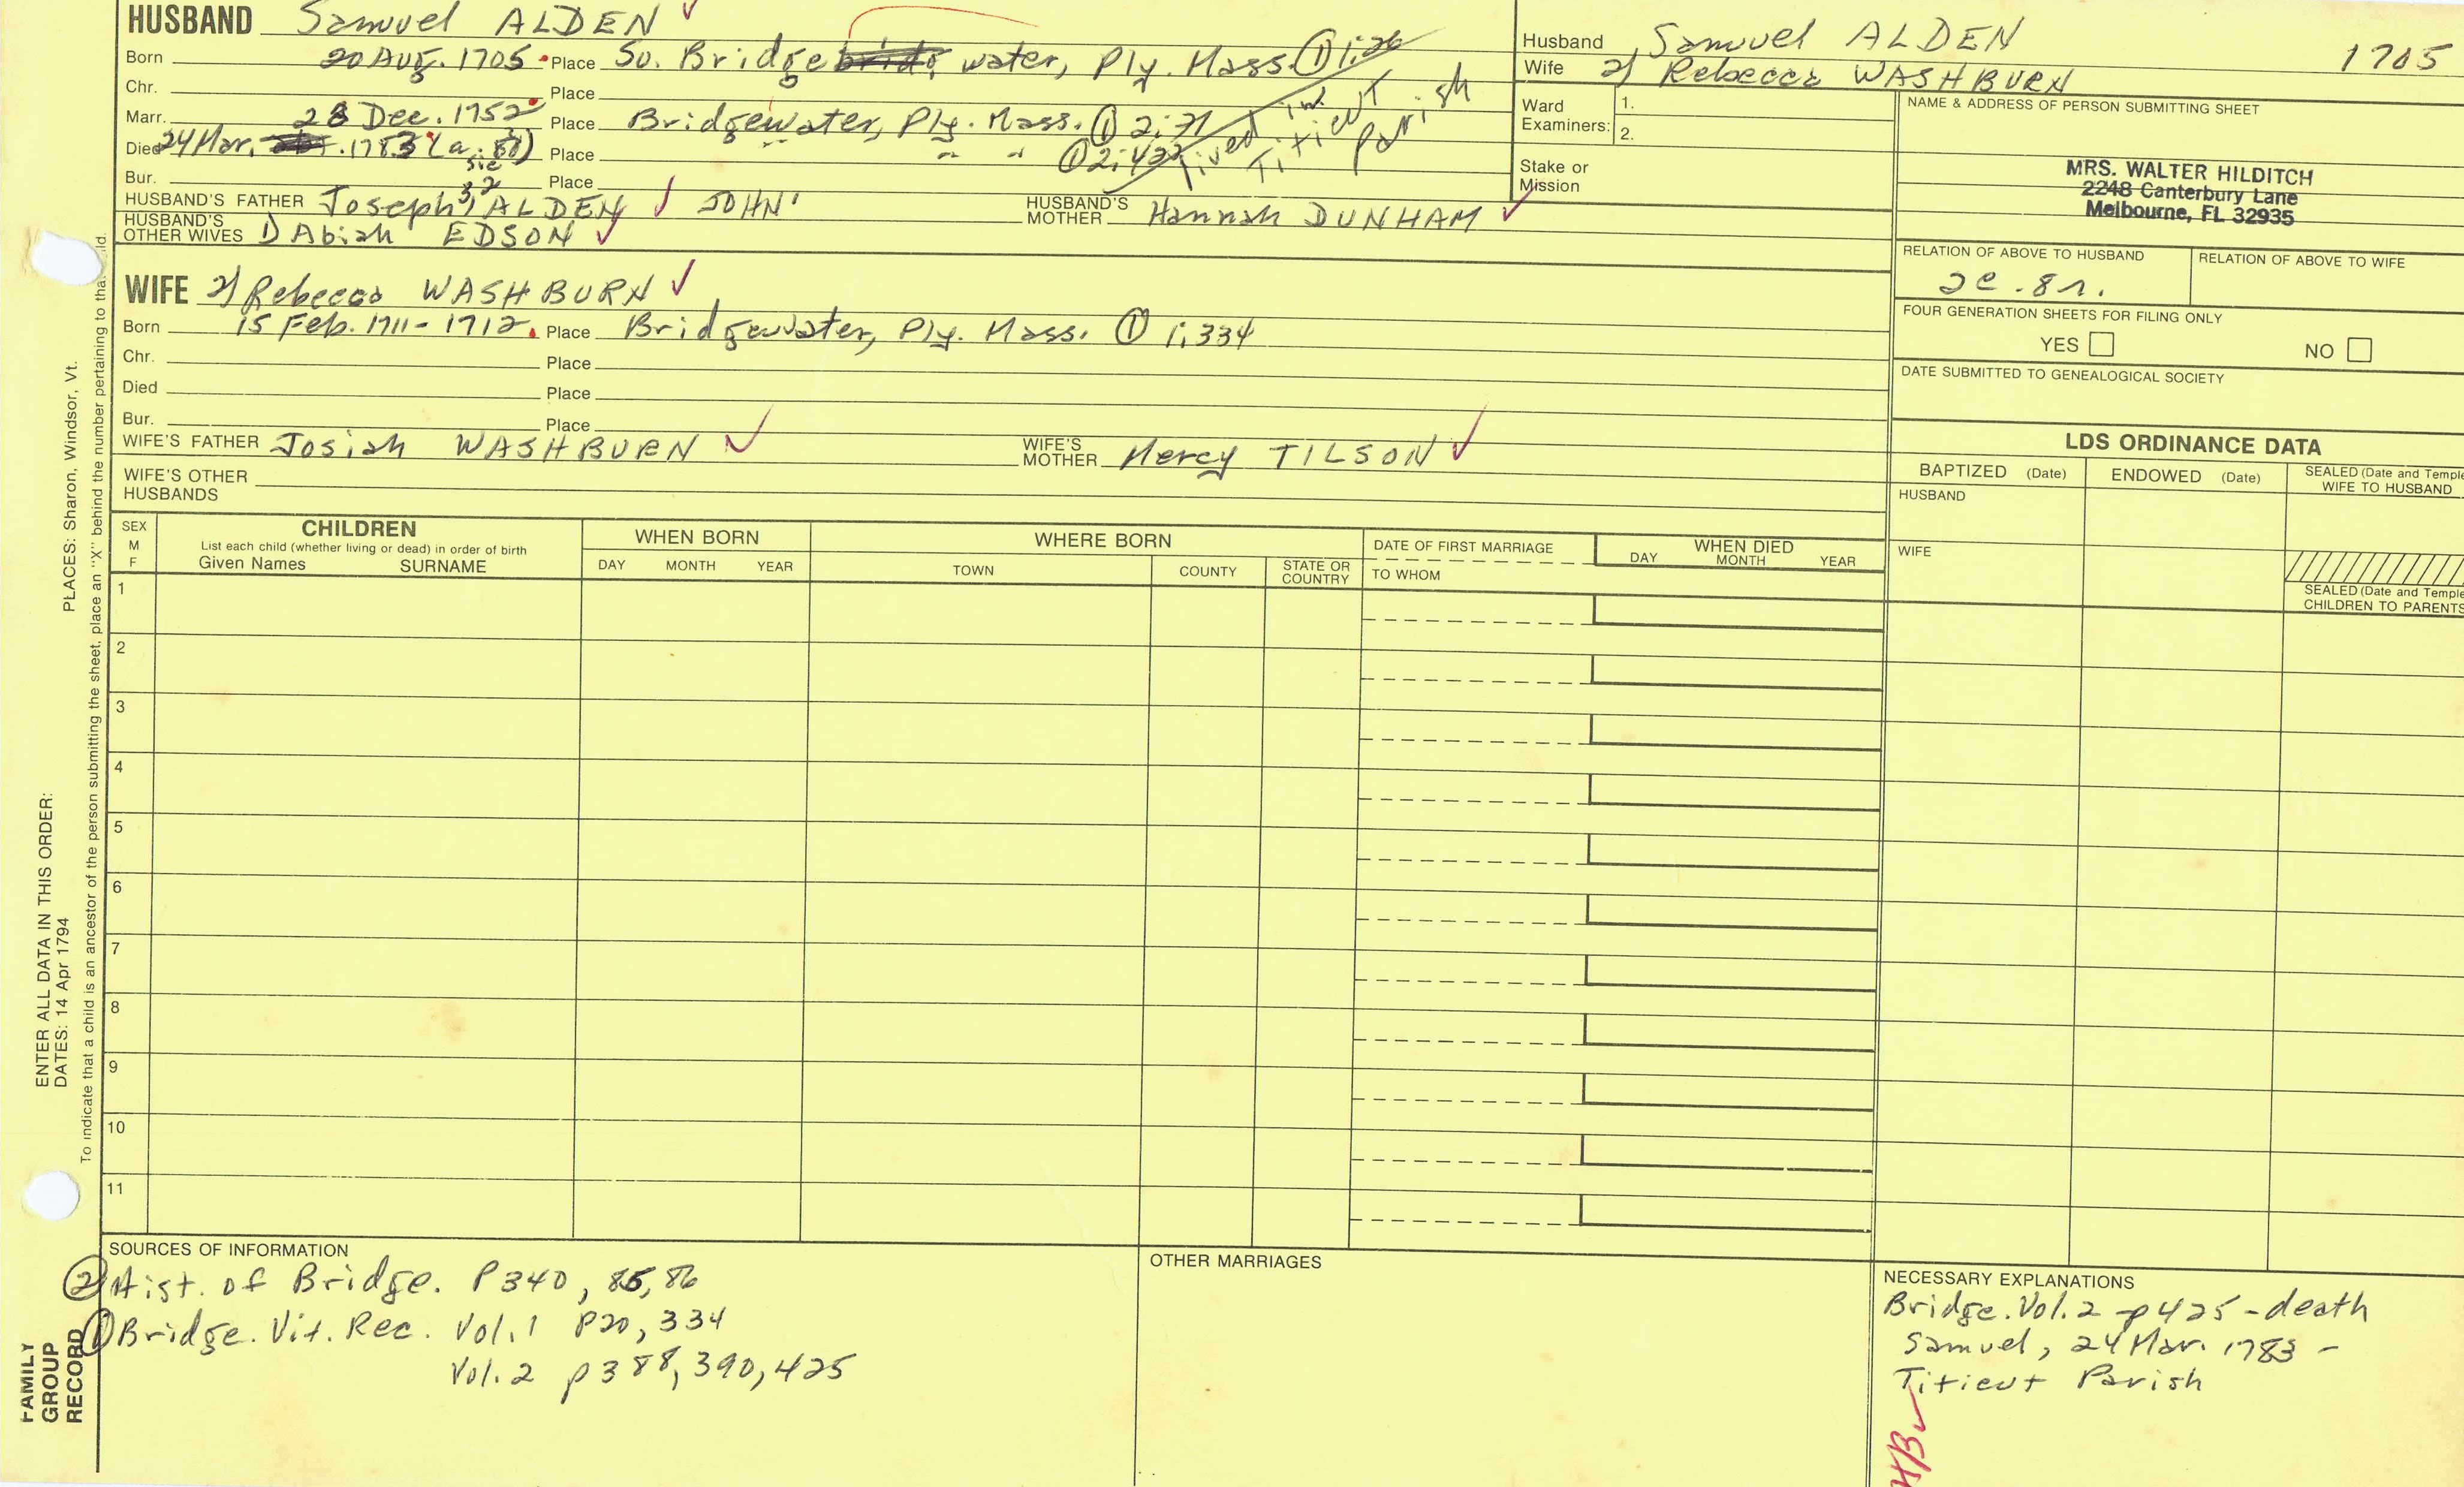 HUSBAND Samuel ALDEN ✓
Born 20 Aug. 1705 Place So. Bridge water, Ply. Mass. ①
Chr. Place
Marr. 28 Dec. 1752 Place Bridgewater, Ply. Mass. ①
Died 24 Mar. 1783 (a. sic) Place " " ①
lived in Titicut Parish
Bur. Place
HUSBAND'S FATHER Joseph³,² ALDEN ✓ JOHN¹ HUSBAND'S MOTHER Hannah DUNHAM ✓
HUSBAND'S OTHER WIVES 1) Abiah EDSON ✓
WIFE 2) Rebecca WASHBURN ✓
Born 15 Feb. 1711-1712. Place Bridgewater, Ply. Mass. ① 1:334
Chr. Place
Died Place
Bur. Place
WIFE'S FATHER Josiah WASHBURN ✓ WIFE'S MOTHER Mercy TILSON ✓
WIFE'S OTHER HUSBANDS
Husband Samuel ALDEN 1705
Wife 2) Rebecca WASHBURN
Ward Examiners: 1.
2.
Stake or Mission
NAME & ADDRESS OF PERSON SUBMITTING SHEET
MRS. WALTER HILDITCH
2248 Canterbury Lane
Melbourne, FL 32935
RELATION OF ABOVE TO HUSBAND RELATION OF ABOVE TO WIFE
2c. 8r.
FOUR GENERATION SHEETS FOR FILING ONLY
YES NO
DATE SUBMITTED TO GENEALOGICAL SOCIETY
LDS ORDINANCE DATA
BAPTIZED (Date) ENDOWED (Date) SEALED (Date and Temple) WIFE TO HUSBAND
HUSBAND
WIFE
SEALED (Date and Temple) CHILDREN TO PARENTS
SEX M F
CHILDREN
List each child (whether living or dead) in order of birth
Given Names SURNAME
WHEN BORN
DAY MONTH YEAR
WHERE BORN
TOWN COUNTY STATE OR COUNTRY
DATE OF FIRST MARRIAGE
TO WHOM
WHEN DIED
DAY MONTH YEAR
1
2
3
4
5
6
7
8
9
10
11
SOURCES OF INFORMATION
② Hist. of Bridge. P340, 85, 86
① Bridge. Vit. Rec. Vol. 1 P20, 334
Vol. 2 p388, 390, 425
OTHER MARRIAGES
NECESSARY EXPLANATIONS
Bridge. Vol. 2 - p425 - death
Samuel, 24 Mar. 1783 -
Titicut Parish
HB ✓
PLACES: Sharon, Windsor, Vt.
ENTER ALL DATA IN THIS ORDER:
DATES: 14 Apr 1794
To indicate that a child is an ancestor of the person submitting the sheet, place an "X" behind the number pertaining to that child.
FAMILY GROUP RECORD